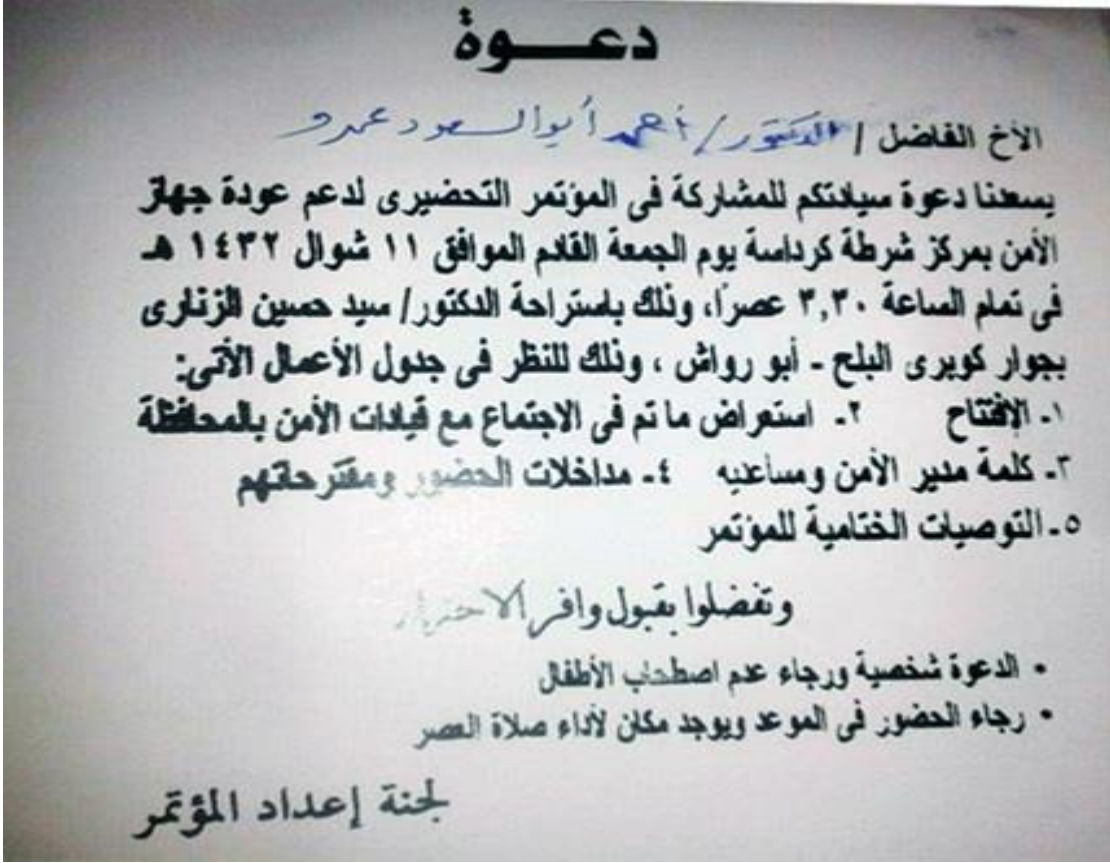 دعـــوة
الأخ الفاضل / الدكتور / أحمد أبو السعود عمرو
يسعدنا دعوة سيادتكم للمشاركة فى المؤتمر التحضيرى لدعم عودة جهاز
الأمن بمركز شرطة كرداسة يوم الجمعة القادم الموافق ١١ شوال ١٤٣٢ هـ
فى تمام الساعة ٣,٣٠ عصرًا، وذلك باستراحة الدكتور/ سيد حسين الزنارى
بجوار كوبرى البلح - أبو رواش ، وذلك للنظر فى جدول الأعمال الآتى:
١- الإفتتاح ٢- استعراض ما تم فى الاجتماع مع قيادات الأمن بالمحافظة
٣- كلمة مدير الأمن ومساعديه ٤- مداخلات الحضور ومقترحاتهم
٥- التوصيات الختامية للمؤتمر
وتفضلوا بقبول وافر الاحترام
• الدعوة شخصية ورجاء عدم اصطحاب الأطفال
• رجاء الحضور فى الموعد ويوجد مكان لأداء صلاة العصر
لجنة إعداد المؤتمر